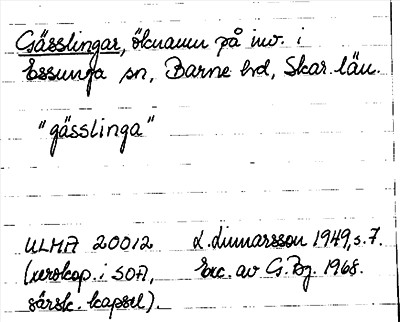 Gässlingar, öknamn på inv. i
Essunga sn, Barne hd, Skar. län.
"gässlinga"
ULMA 20012 L. Linnarsson 1949, s. 7.
(uroksp. i SOA, Exc. av G. Bg. 1968.
särsk. kapsel).